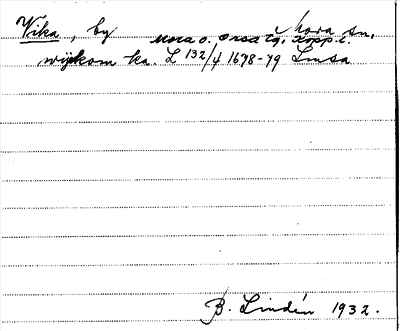 Vika, by Mora sn,
Mora o. Orsa tg, kopp.l.
wijkom ka. L 132/4 1678-79 Lmsa
B. Lindén 1932.